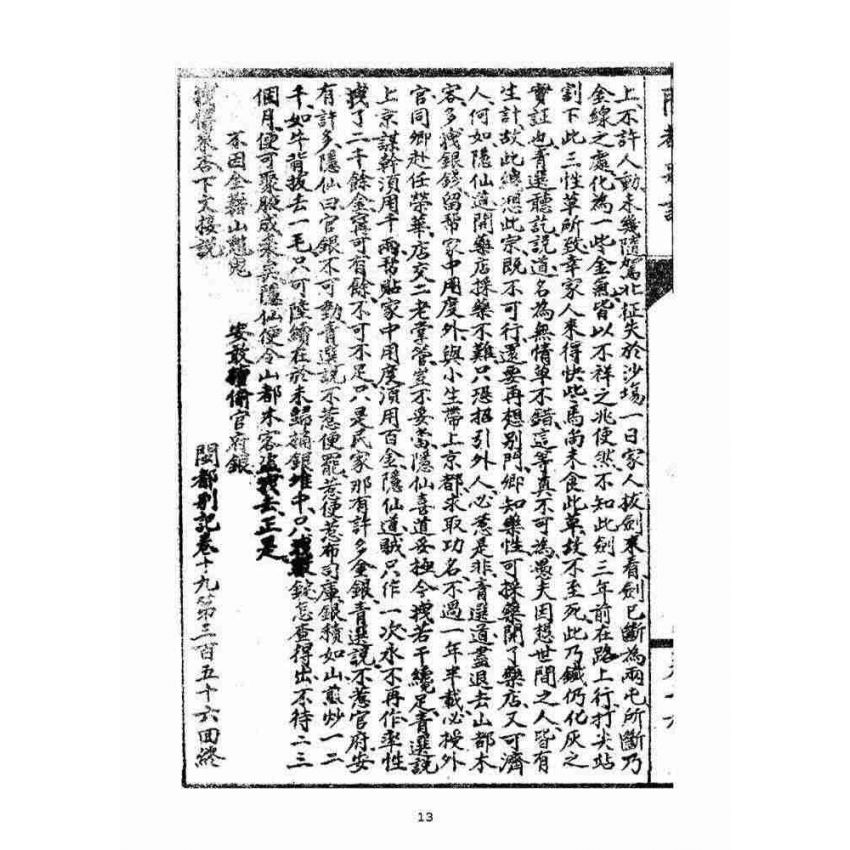 上不許人動未幾隨駕北征失於沙塲一日家人拔劍來看劍已斷為兩屯所斷乃
金線之處化為一些金氣皆以不祥之兆使然不知此劍三年前在路上行打尖站
割下此三性草所致幸家人來得快些馬尚未食此草故不至死此乃鐵仍化灰之
實証也青選聽訖説道名為無情草不錯這等真不可為愚夫因想世間之人皆有
生計故此總想此宗既不可行還要再想別門鄉知藥性可採藥開了藥店又可濟
人何如隱仙道開藥店採藥不難只恐招引外人必惹是非青選道盡退去山都木
客多拽銀錢留帮家中用度外與小生帶上京都求取功名不過一年半載必授外
官同鄉赴任榮華店交二老掌管豈不妥當隱仙喜道妥極令拽若干纔足青選説
上京謀幹須用千兩帮貼家中用度須用百金隱仙道賊只作一次永不再作率性
拽了二千餘金寧可有餘不可不足只是民家那有許多金銀青選説不惹官府安
有許多隱仙曰官銀不可動青選説不惹便罷惹便惹布司庫銀積如山煎炒一二
千如牛背拔去一毛只可陸續在於未歸補銀堆中只拽數錠怎查得出不待二三
個月便可聚腋成裘矣隱仙便令山都木客拽去正是
不因金籍山魈鬼
安敢偷官府銀
下文接説
閩都別記卷十九第三百五十六回終
13